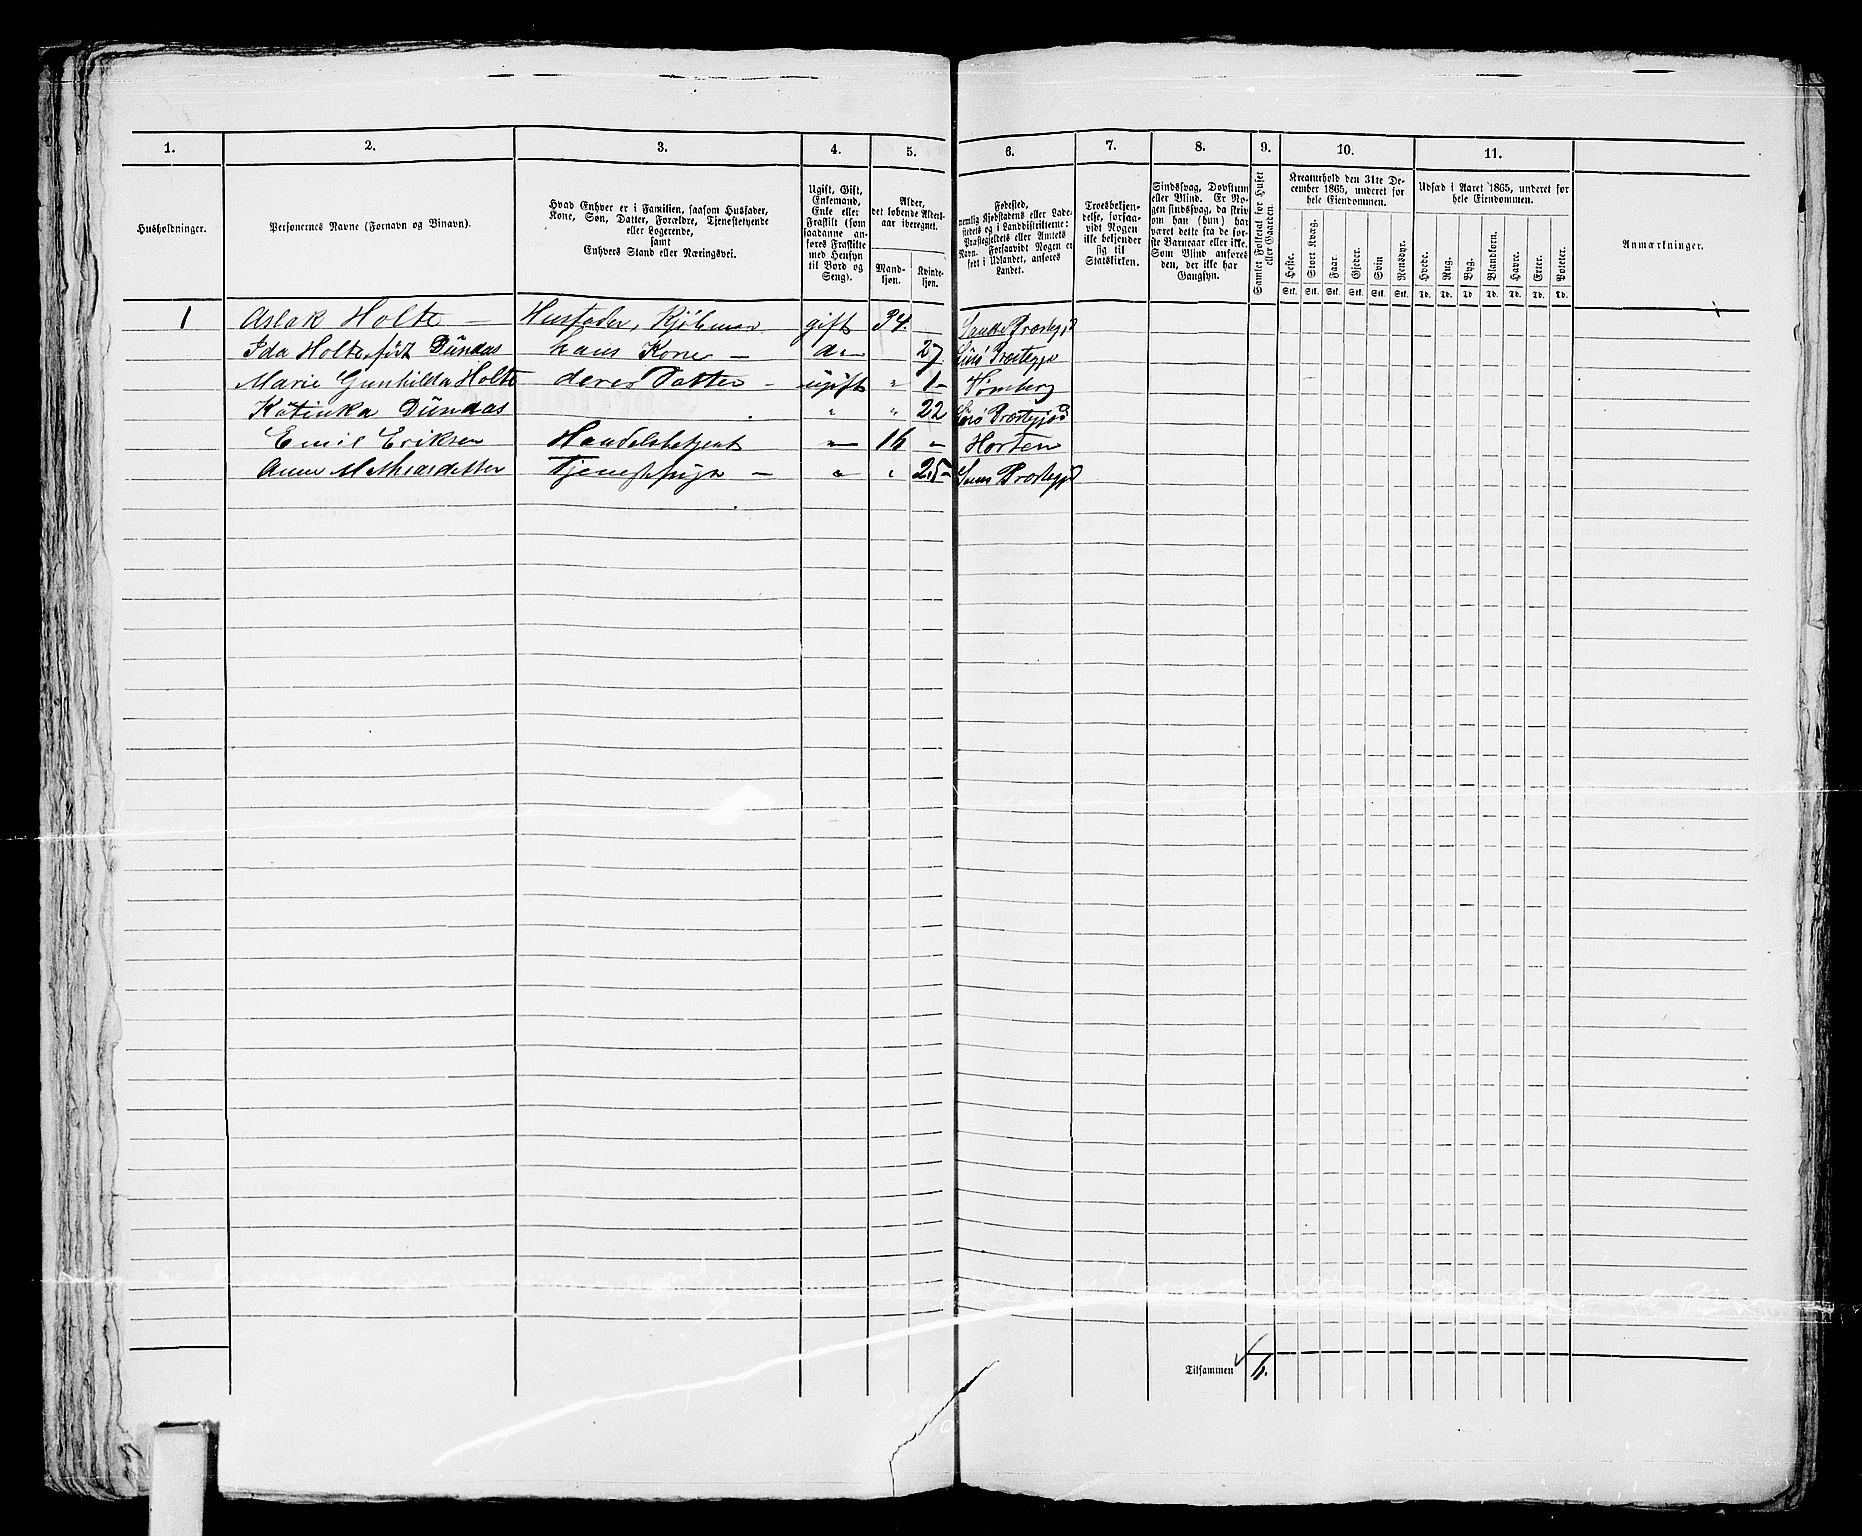 1. 2. 3. 4. 5. 6. 7. 8. 9. 10. 11.
Husholdninger.
Personernes Navne (Fornavn og Binavn).
Hvad Enhver er i Familien, saasom Husfader,
Kone, Søn, Datter, Forældre, Tjenestetyende
eller Logerende,
samt
Enhvers Stand eller Næringsvei.
Ugift, Gift,
Enkemand,
Enke eller
Fraskilt (som
saadanne an-
føres Fraskilte
med Hensyn
til Bord og
Seng).
Alder,
det løbende Alders-
aar iberegnet.
Mand-
kjøn.
Kvinde-
kjøn.
Fødested,
nemlig Kjøbstadens eller Lade-
stedets og i Landdistrikterne:
Præstegjeldets eller Amtets
Navn. Forsaavidt Nogen er
født i Udlandet, anføres
Landet.
Troesbekjen-
delse, forsaa-
vidt Nogen
ikke bekjender
sig til
Statskirken.
Sindssvag, Døvstum
eller Blind. Er No-
gen sindssvag, da skriv
om han (hun) har
været dette fra de før-
ste Barneaar eller ikke.
Som Blind anføres
den, der ikke har
Gangsyn.
Samlet Folketal for Huset
eller Gaarden.
Kreaturhold den 31te De-
cember 1865, underet for
hele Eiendommen.
Heste. Stort Kvæg. Faar. Gjeder. Svin Rensdyr.
Stk. Stk. Stk. Stk. Stk. Stk.
Udsæd i Aaret 1865, underet for
hele Eiendommen.
Hvede. Rug. Byg. Blandkorn. Havre. Erter. Poteter.
Td. Td. Td Td. Td. Td. Td.
Anmærkninger.
1 Aslak Holte — Husfader, Kjøbmand gift 34. — Præstegjd
Ida Holte, født Dündas hans Kone — do— 27 Præstegjd
Marie Gunhilda Holte deres Datter — ugift " 1 — Tønsberg
Katinka Dündas " " 22 Præstegjd
Emil Eriksen Handelsbetjent " 16 — Horten
Anne Mathiasdatter Tjenestpige — " " 25 — Sems Præstegjd
Tilsammen 6.